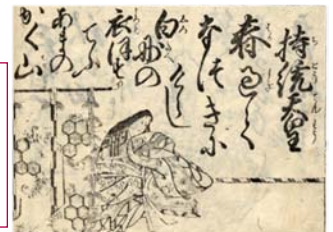 持統天皇
春過て
なつきに
けらし
白妙の
衣ほす
てふ
あまの
かく山